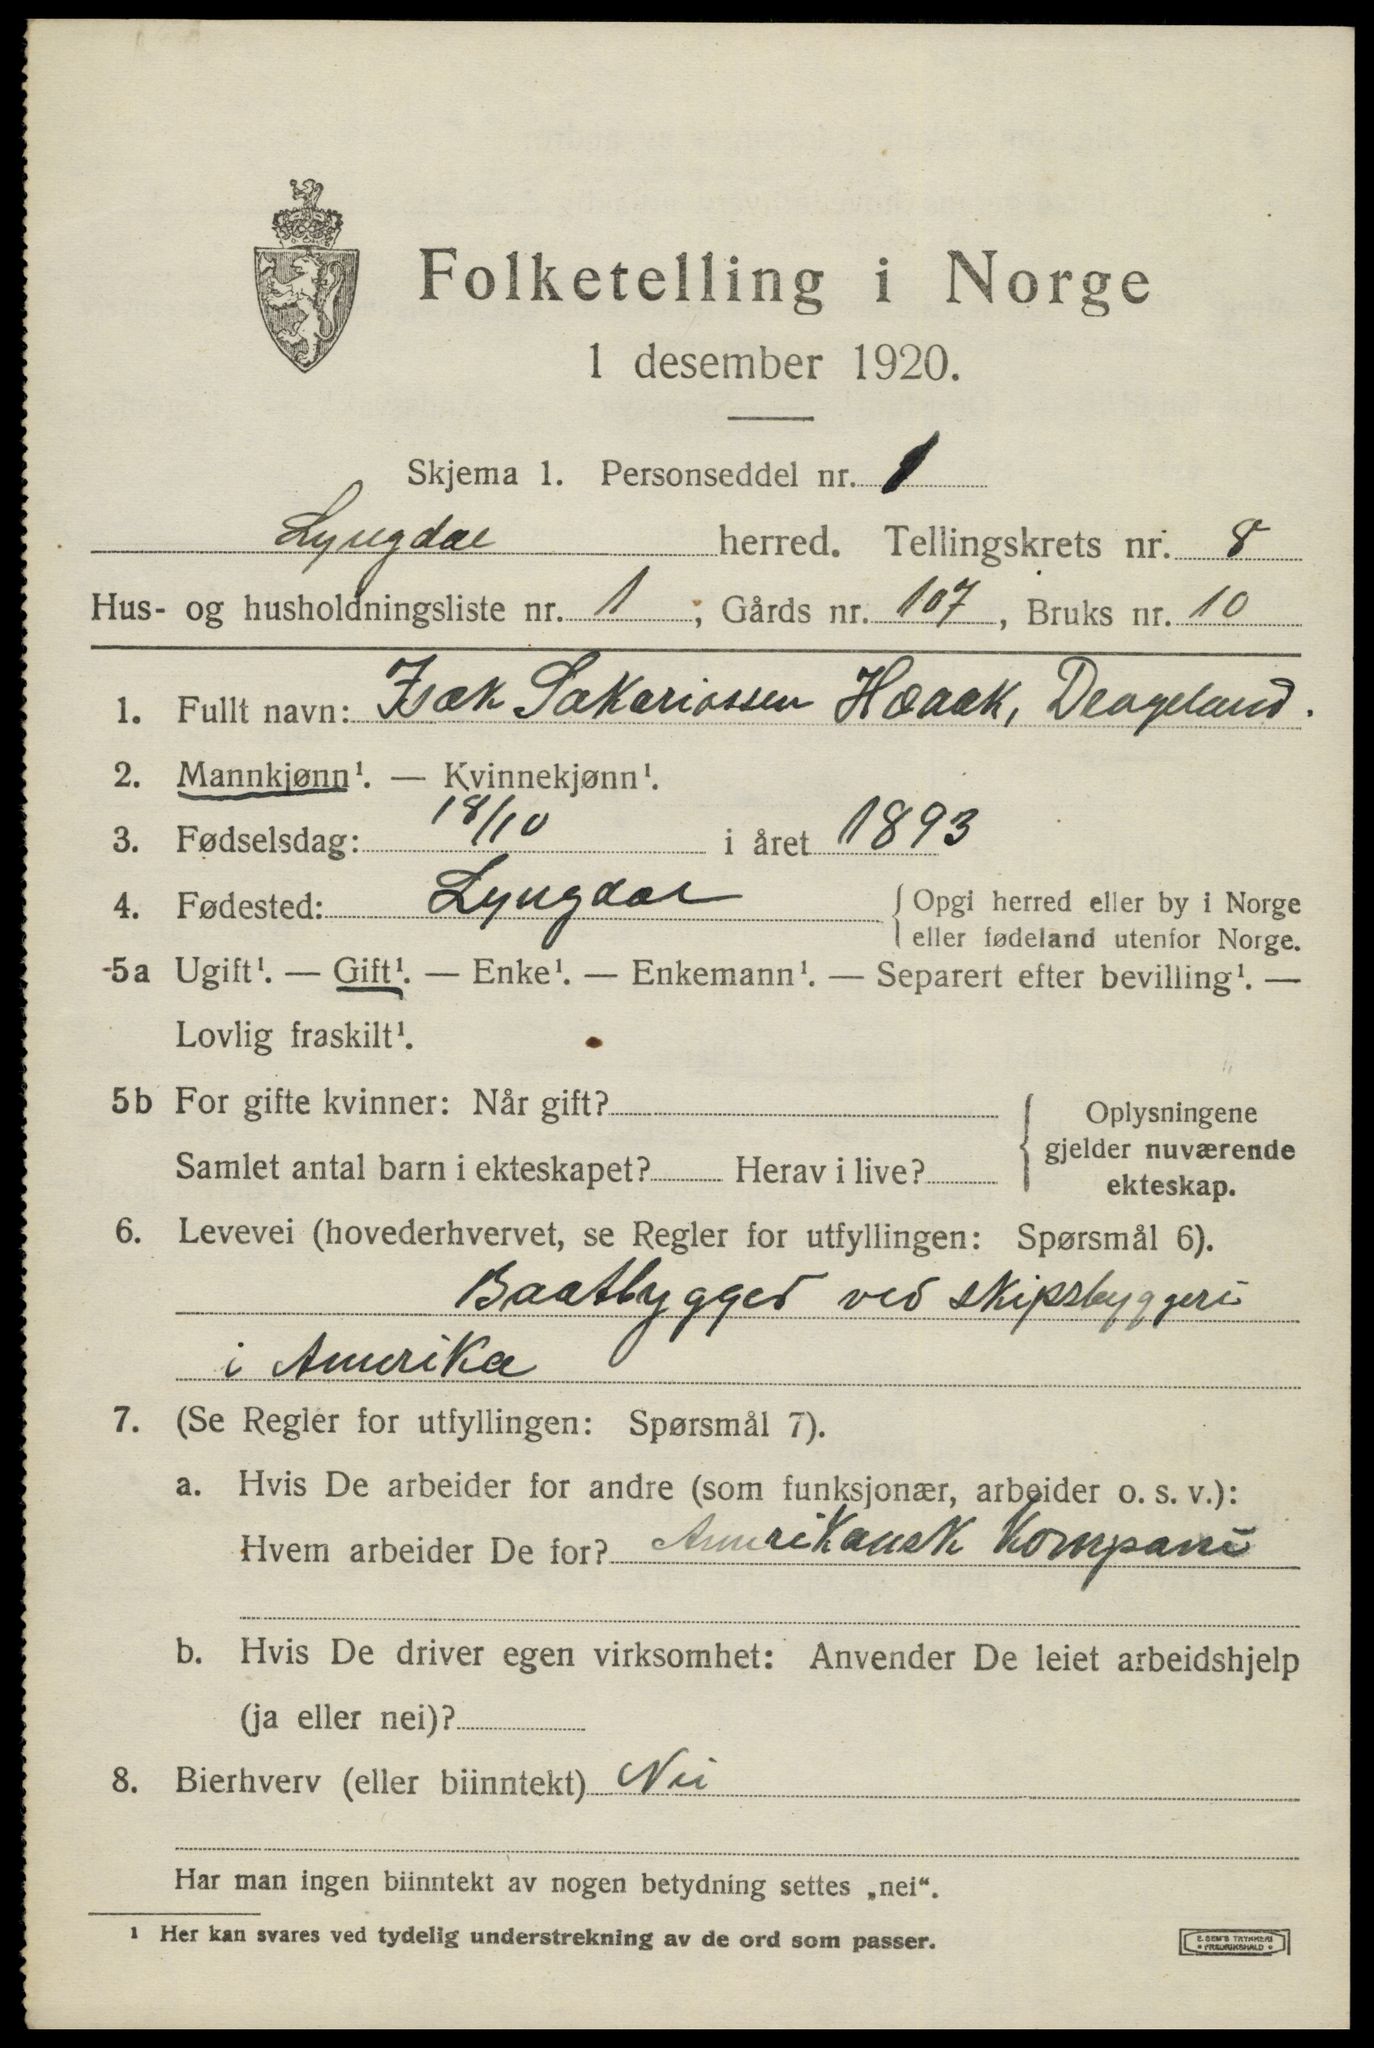 Folketelling i Norge
1 desember 1920.
Skjema 1. Personseddel nr. 1
Lyngdal herred. Tellingskrets nr. 8
Hus- og husholdningsliste nr. 1; Gårds nr. 107, Bruks nr. 10
1. Fullt navn: Isak Sakariassen Haaak, Drageland.
2. Mannkjønn¹. — Kvinnekjønn¹.
3. Fødselsdag: 18/10 i året 1893
4. Fødested: Lyngdal { Opgi herred eller by i Norge
eller fødeland utenfor Norge.
5a Ugift¹. — Gift¹. — Enke¹. — Enkemann¹. — Separert efter bevilling¹. —
Lovlig fraskilt¹.
5b For gifte kvinner: Når gift?
Samlet antal barn i ekteskapet? Herav i live?
Oplysningene
gjelder nuværende
ekteskap.
6. Levevei (hovederhvervet, se Regler for utfyllingen: Spørsmål 6).
Baatbygger ved skipsbyggeri
i Amerika
7. (Se Regler for utfyllingen: Spørsmål 7).
a. Hvis De arbeider for andre (som funksjonær, arbeider o. s. v.):
Hvem arbeider De for? Amerikansk Kompani
b. Hvis De driver egen virksomhet: Anvender De leiet arbeidshjelp
(ja eller nei)?
8. Bierhverv (eller biinntekt) Nei
Har man ingen biinntekt av nogen betydning settes „nei“.
¹ Her kan svares ved tydelig understrekning av de ord som passer.
E. SEM'S TRYKKERI
FREDRIKSHALD